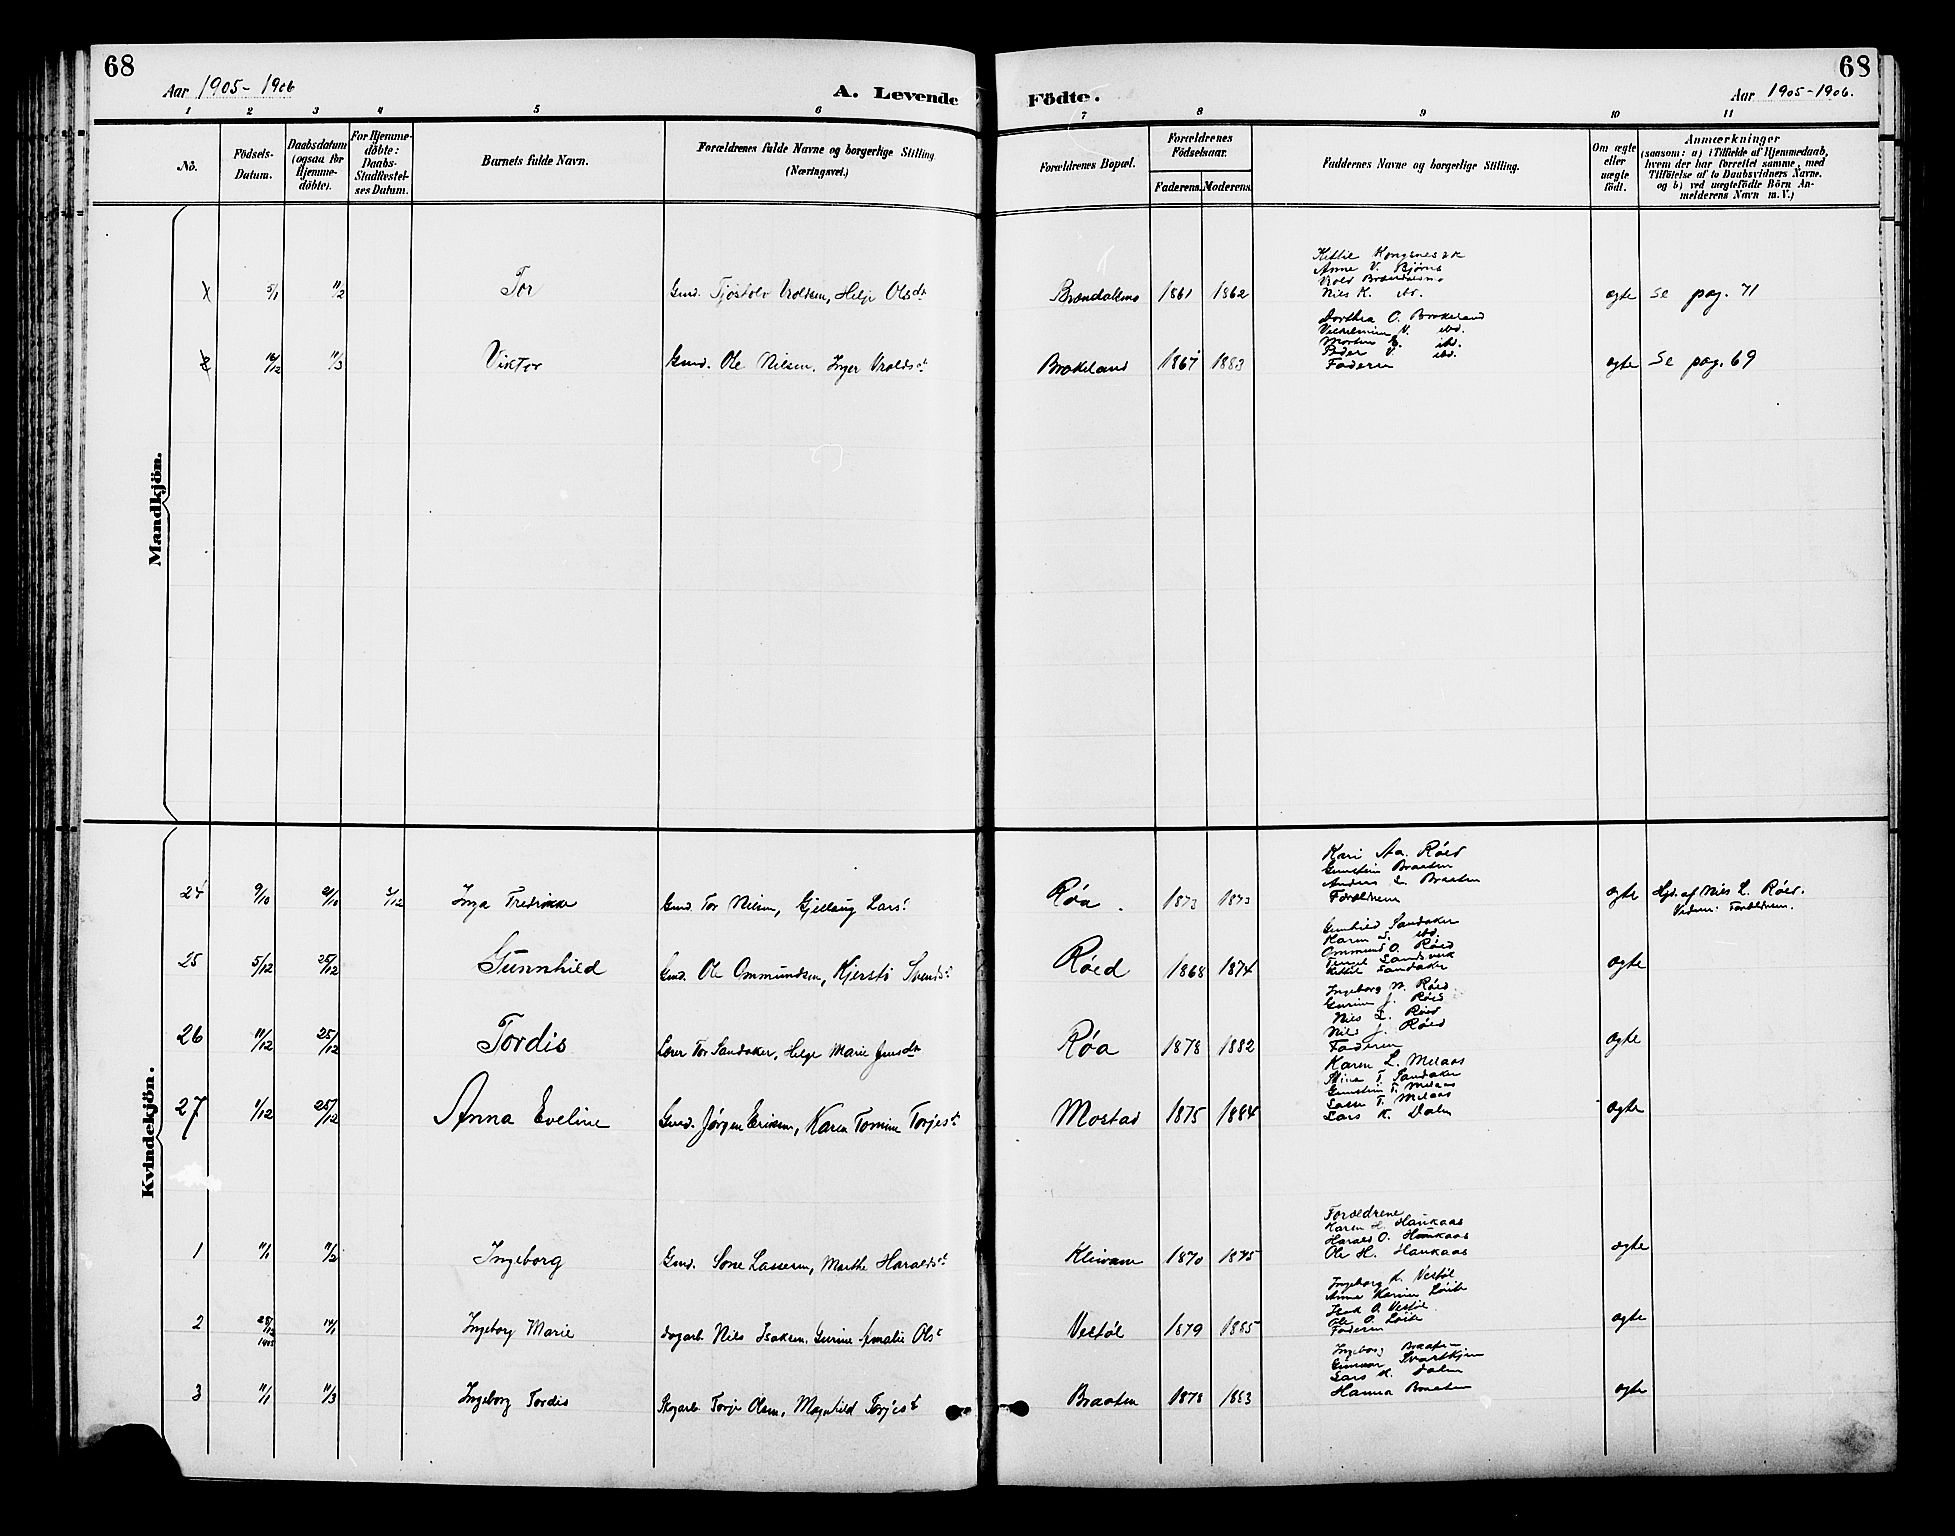 68
Aar 1905-1906
A. Levende
Födte.
Aar 1905-1906.
68
1 2 3 4 5 6 7 8 9 10 11
No.
Födsels-
Datum.
Daabsdatum
(ogsaa for
Hjemme-
döbte).
For Hjemme-
döbte:
Daabs-
Stadfæstel-
ses Datum.
Barnets fulde Navn.
Forældrenes fulde Navne og borgerlige Stilling
(Næringsvei.)
Forældrenes Bopæl.
Forældrenes
Födselsaar.
Faderens. Moderens.
Faddernes Navne og borgerlige Stilling.
Om ægte
eller
uægte
födt.
Anmærkninger
(saasom: a) i Tilfælde af Hjemmedaab,
hvem der har forrettet samme, med
Tilföielse af to Daabsvidners Navne.
og b) ved uægtefödte Börn An-
melderens Navn m. V.)
Mandkjön.
5/1 11/2 Tor Gmd. Tjøstolv Vrolsen, Helje Olsdt 1861 1862
Anne V. Bjørns
Niels K. ibd.
ægte Se pag. 71
2 16/12 11/3 Viktor Gmd. Ole Nielsen, Inger Vroldsdt Brækeland 1867 1883
Dorthea O. Brækeland
Vilhelmine V. ibd.
Peder V. ibd.
Faderen
ægte Se pag. 69
Kvindekjön.
24 9/10 21/10 3/12 Inga Fredrikke Gmd. Tor Nielsen, Gjellaug Larsd. Røa 1873 1873
Kari Aa. Røed
Gunstein Braaten
Anders L. Braaten
Forældrene
ægte Hjd. af Niels L. Røed.
Vidner: Forældrene.
25 5/12 25/12 Gunnhild Gmd. Ole Ommundsen, Kjerstø Svendsdt Røed 1868 1874
Gunhild Sandaker
Karen S. ibd.
Ommund O. Røed
Kittil Sandaker
ægte
26 11/12 25/12 Tordis Lærer Tor Sandaker, Helge Marie Jensdt Røa 1878 1882
Ingeborg N. Røed
Gurine J. Røed
Niels L. Røed
Nils J. Røed
Faderen
ægte
27 1/12 25/12 Anna Eveline Gmd. Jørgen Eriksen, Karen Tomine Torjesdt Mostad 1875 1884
Karen L. Melaas
Stina T. Sandaker
Gunstein T. Melaas
Lasse T. Melaas
Lars K. Dalen
ægte
1 11/1 11/2 Ingeborg Gmd. Sone Lassesen, Marthe Haraldsdt Kleivane 1870 1875
Forældrene
Karen H. Haukaas
Harald O. Haukaas
Ole H. Haukaas
ægte
2 28/12 1905 14/1 Ingeborg Marie Dagarb. Nils Isaksen, Gurine Amalie Olsdt Vestøl 1879 1885
Ingeborg K. Vestøl
Anne Karine Løite
Isak O. Vestøl
Ole O. Løite
Faderen
ægte
3 11/1 11/3 Ingeborg Tordis Skogarb. Torje Olsen, Magnhild Torjesdt Braaten 1878 1883
Ingeborg Braaten
Gunnar Svartkjen
Lars K. Dalen
Hanna Braaten
ægte